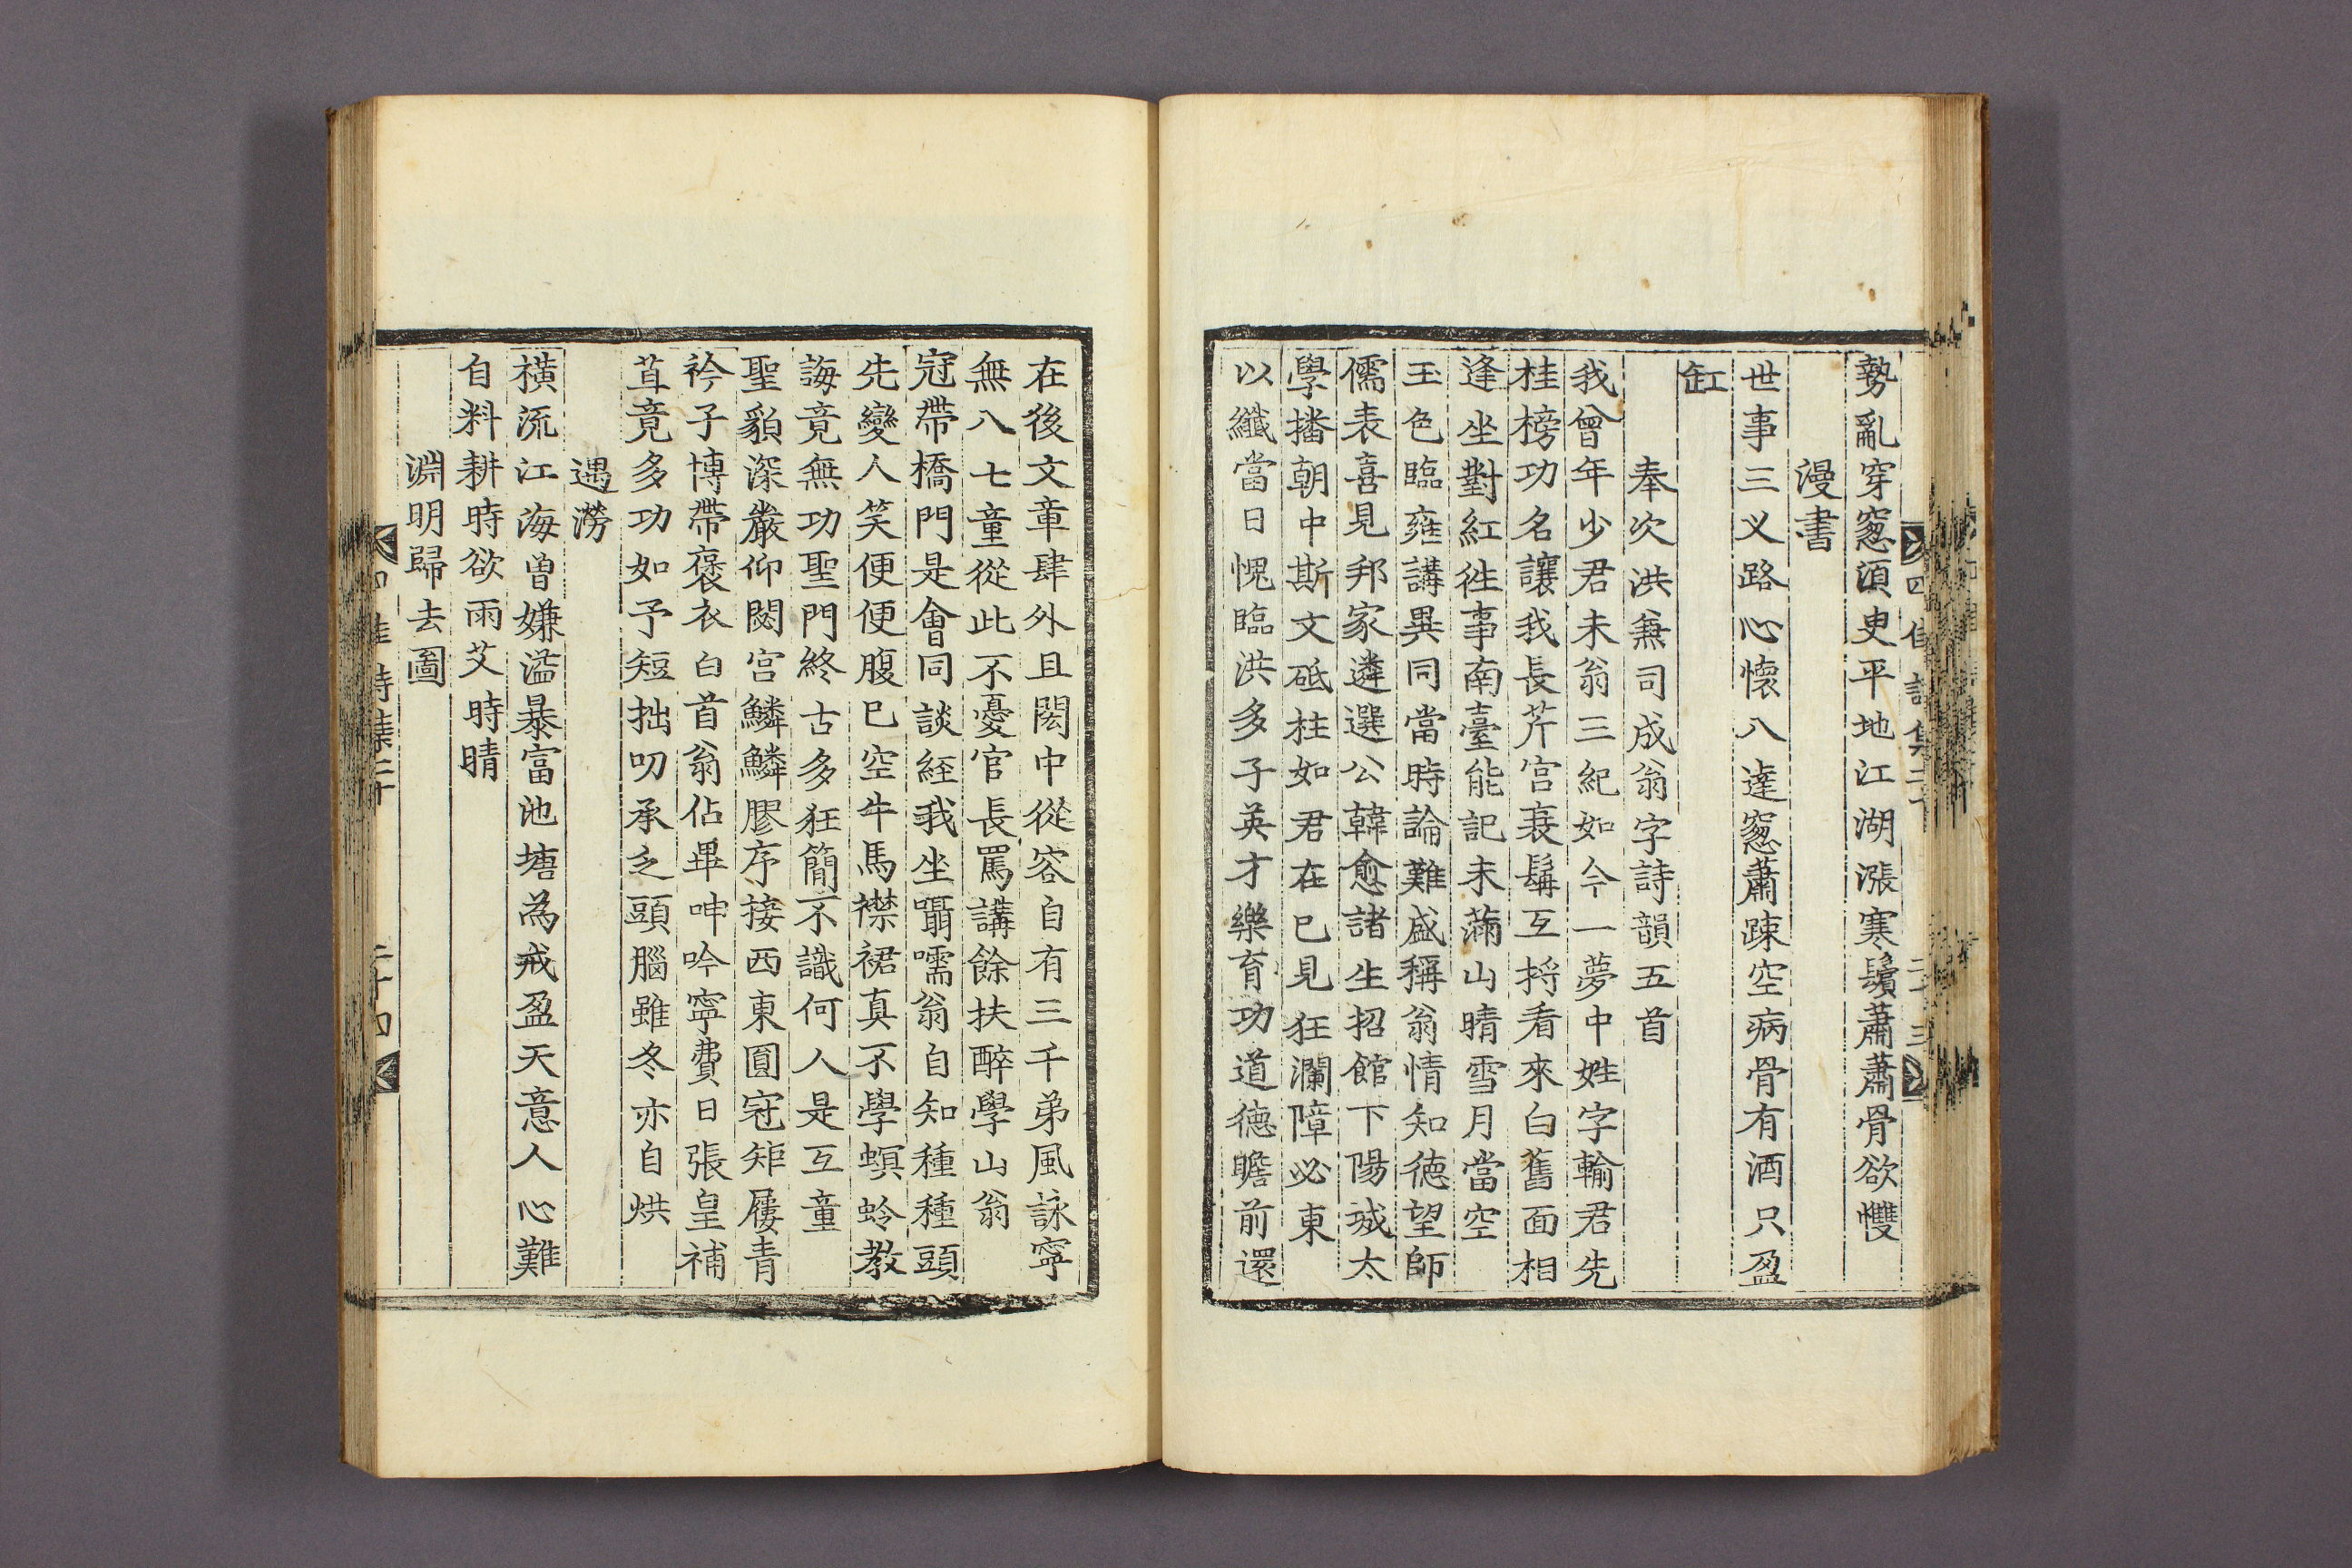 勢亂穿窓湏㬰平地江湖漲寒鬚蕭蕭骨欲雙
漫書
世事三乂路心懷八達窓蕭踈空病骨有酒只盈
缸
奉次洪兼司成翁字詩韻五首
我曾年少君未翁三紀如今一夢中姓字輸君先
桂榜功名讓我長芹宫衰鬂互捋看來白舊面相
逢坐對紅徃事南臺能記未滿山晴雪月當空
玉色臨雍講異同當時論難盛稱翁情知德望師
儒表喜見邦家遴選公韓愈諸生招館下陽城太
學播朝中斯文砥柱如君在已見狂瀾障必東
以纖當日愧臨洪多子英才樂育功道德瞻前還
在後文章肆外且閎中從容自有三千弟風詠寧
無八七童從此不憂官長罵講餘扶醉學山翁
冠帶橋門是會同談経我坐囁嚅翁自知種種頭
先變人笑便便腹已空牛馬襟裾真不學螟蛉教
誨竟無功聖門終古多狂簡不識何人是互童
聖貌深嚴仰閟宫鱗鱗膠序接西東圓冠矩屨青
衿子博帶褒衣白首翁佔畢呻吟寧費日張皇補
苴竟多功如予短拙叨承乏頭腦雖冬亦自烘
遇澇
橫流江海曾嫌溢暴富池塘為戒盈天意人心難
自料耕時欲雨艾時晴
淵明歸去圖